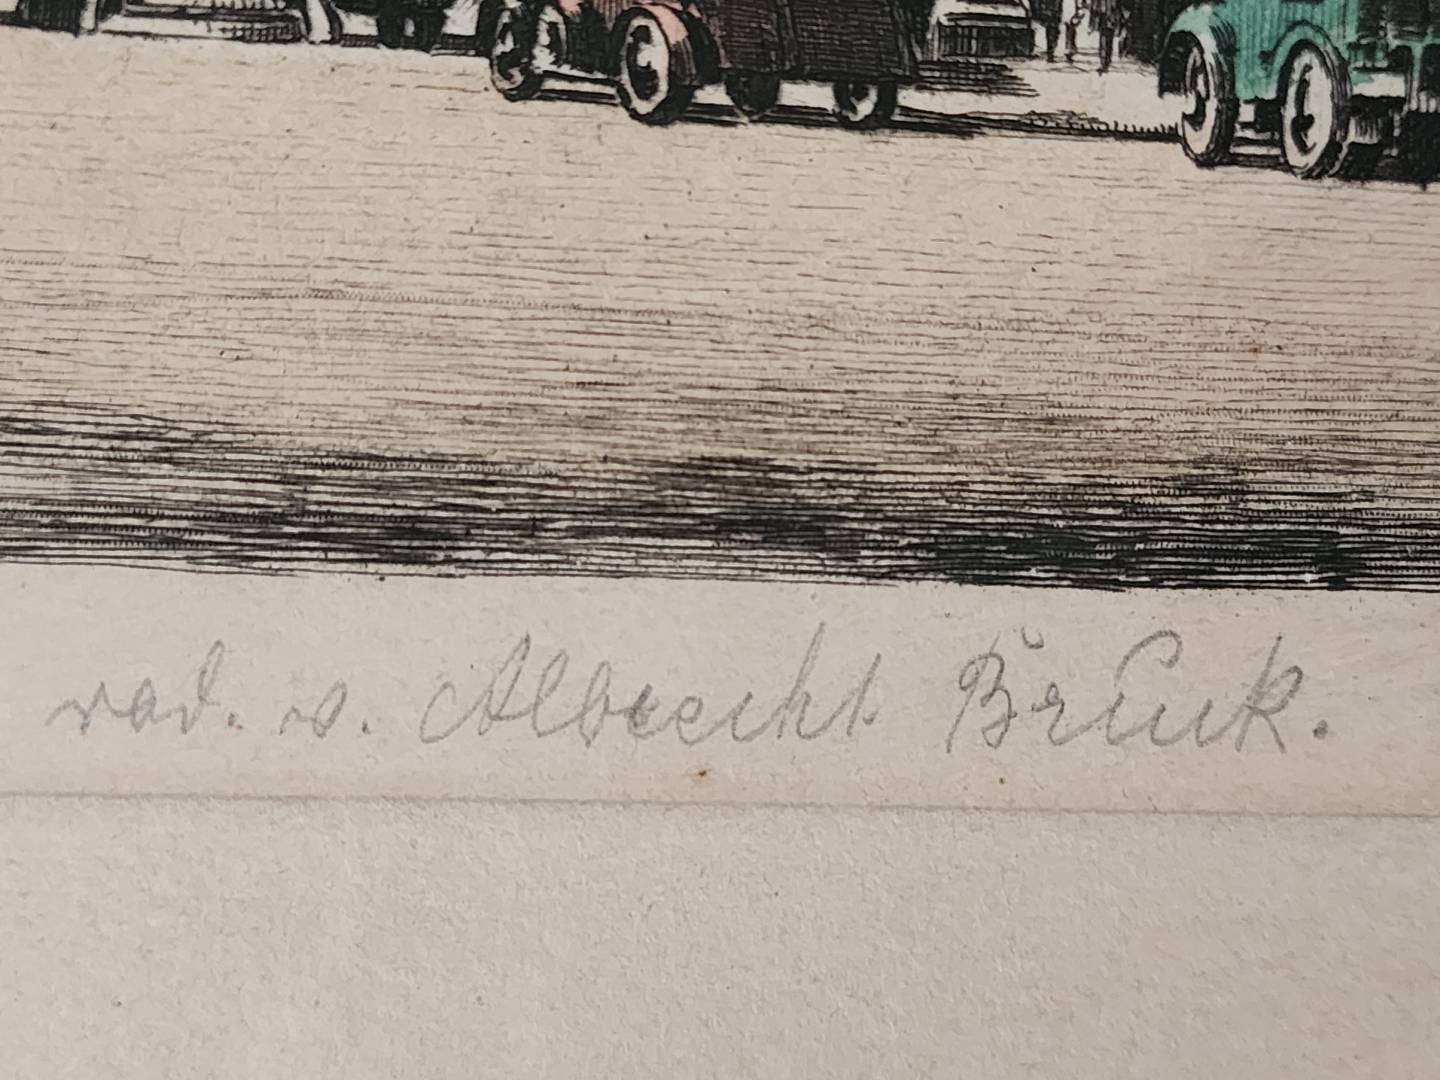 rad. v. Albrecht Bruck.